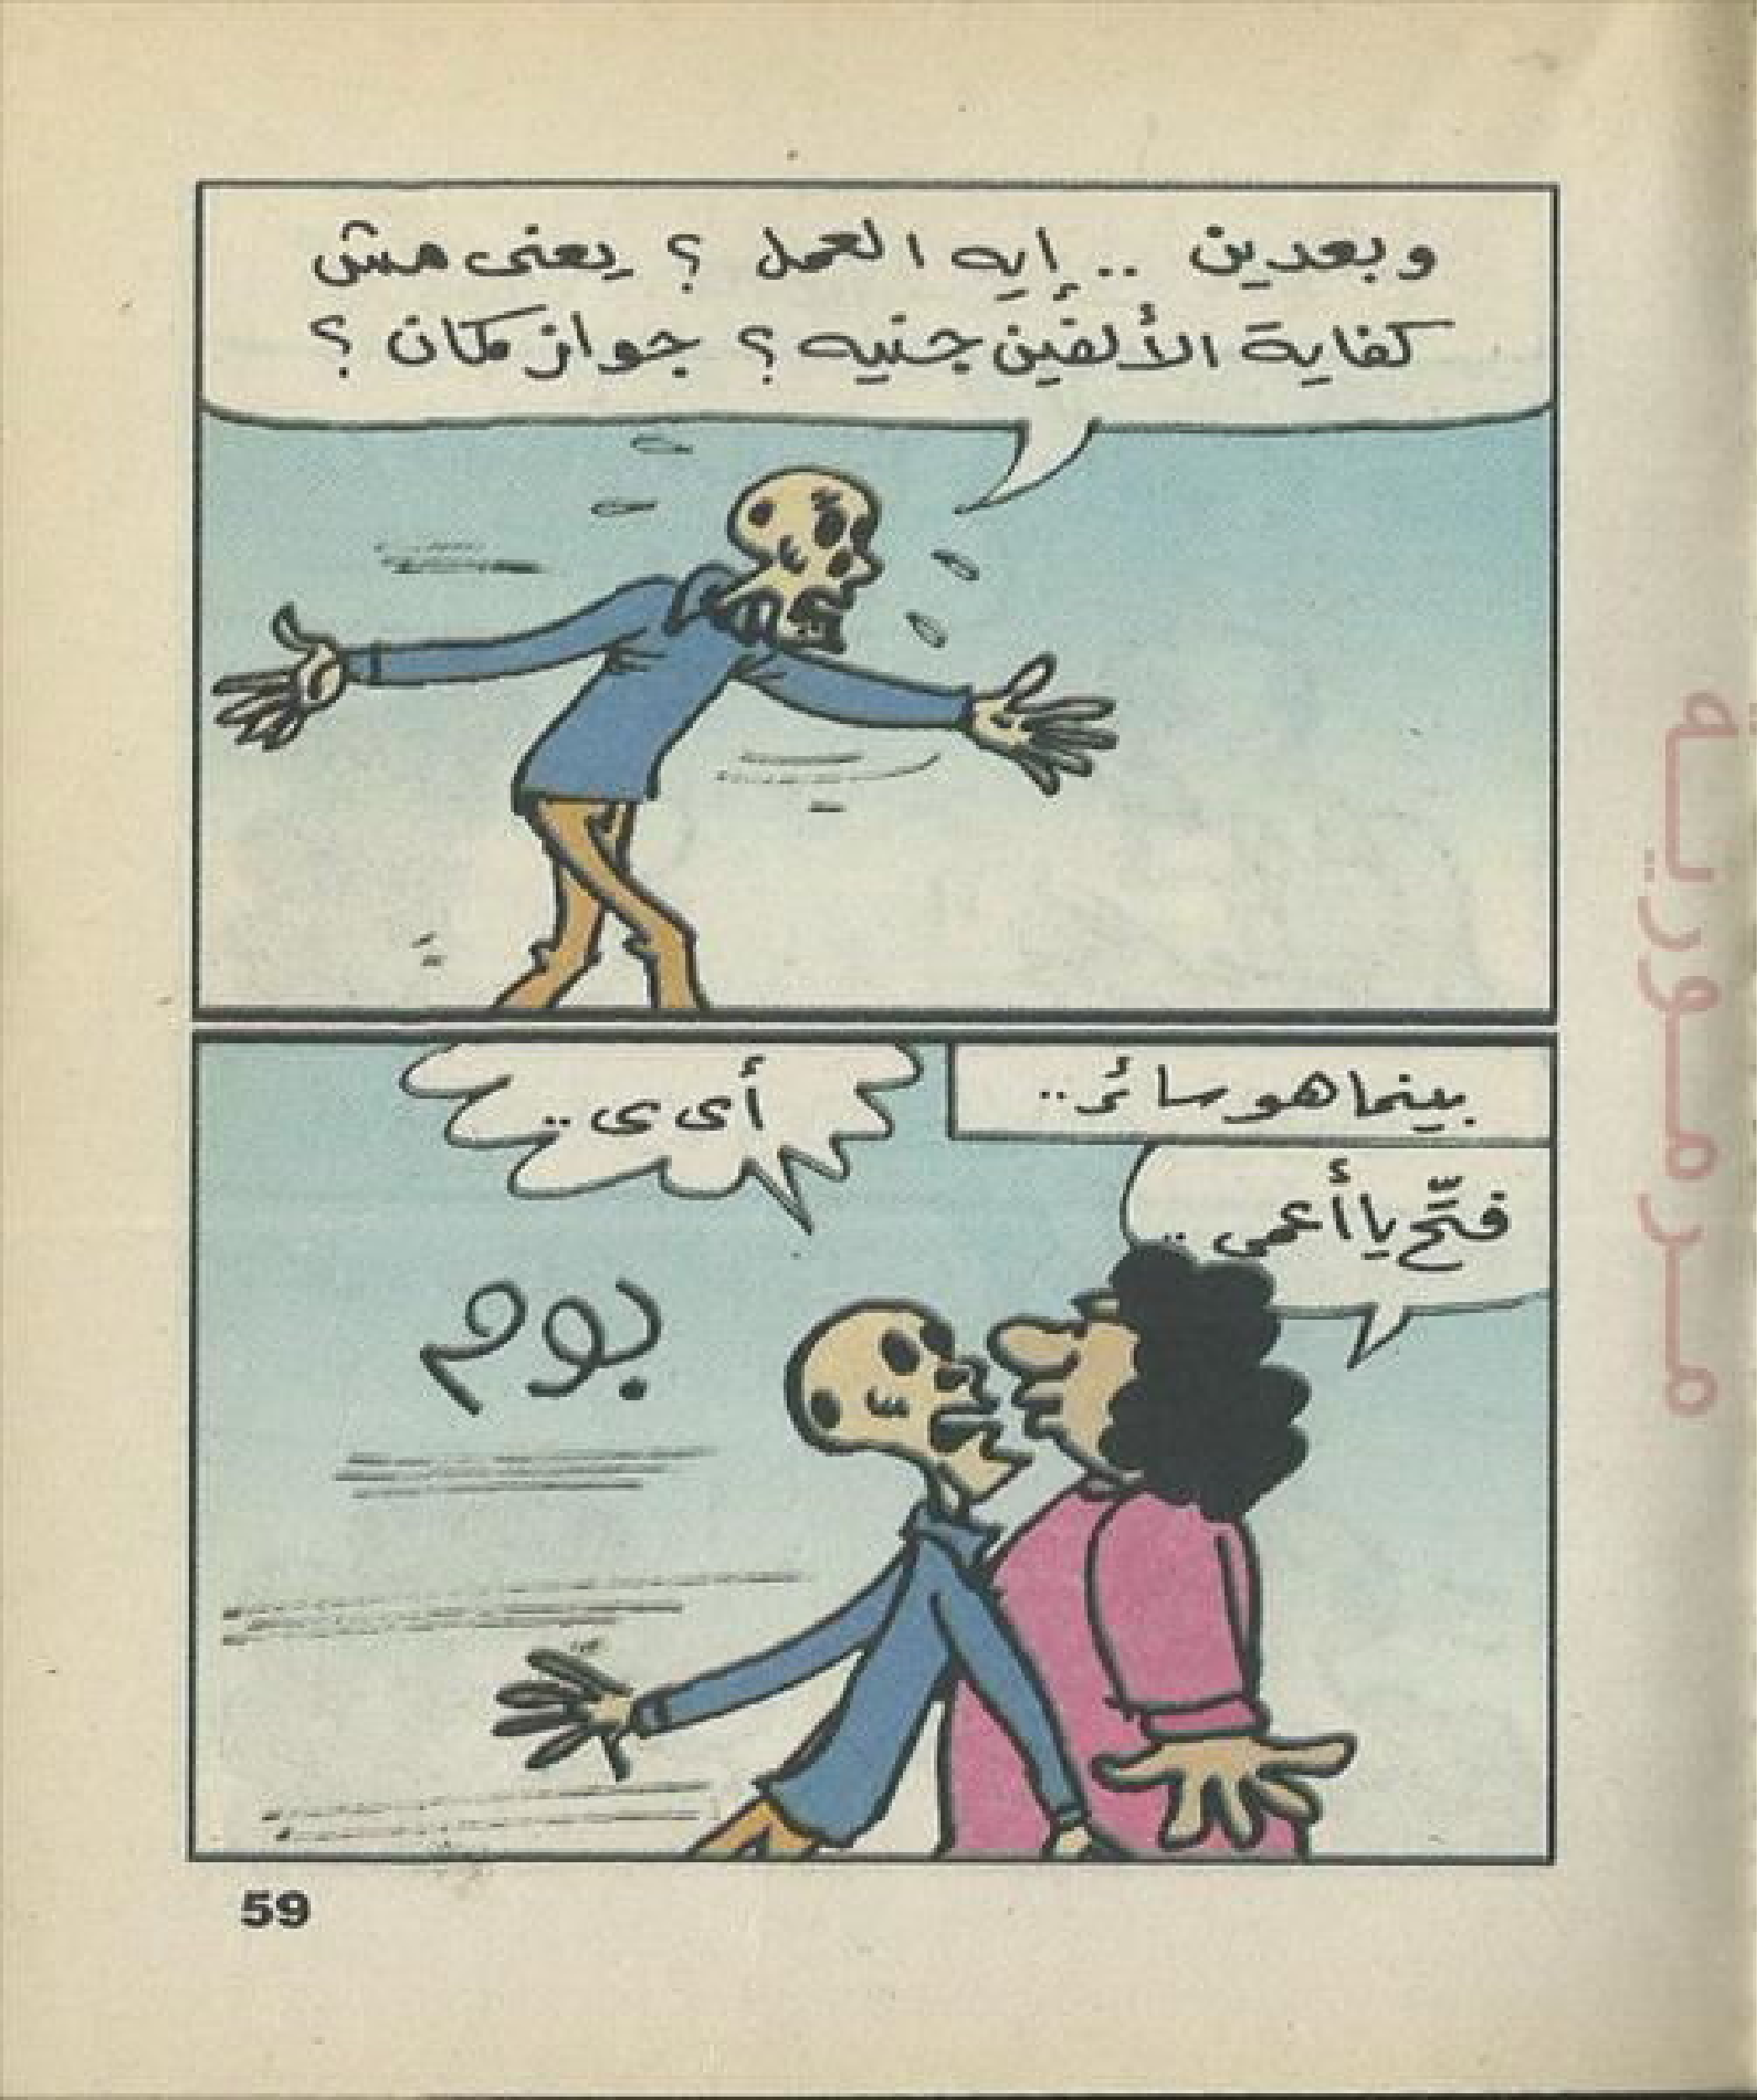 وبعدين .. إيه العمل ؟ يعنى مش
كفاية الألفين جنيه ؟ جواز كمان ؟
بينما هو سائر ..
أى ى ..
فتّح يا أعمى ..
بوم
59